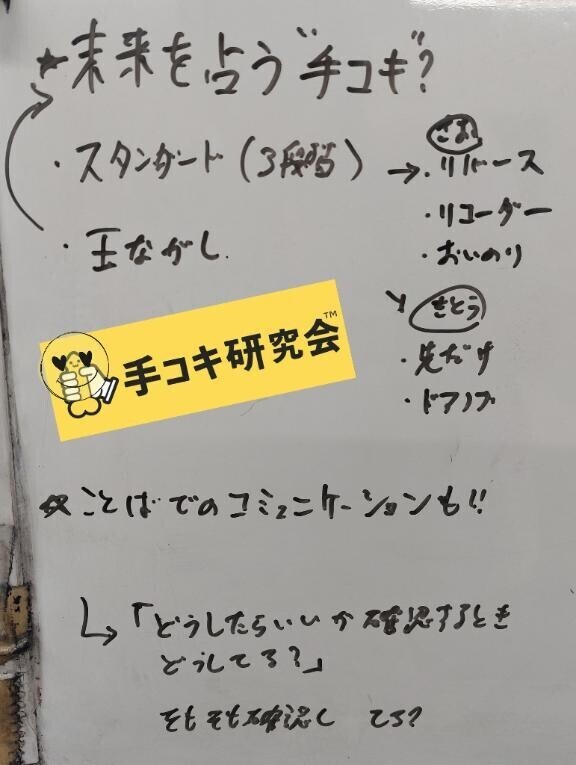 ★未来を占う"手コキ"?
・スタンダード(3段階)→
・玉ながし
さお
・リバース
・リコーダー
・おいのり
きとう
・先だけ
・ドアノブ
手コキ研究会™
☆ことばでのコミュニケーションも!!
↳「どうしたらいいか確認するとき
どうしてる?」
そもそも確認してる?